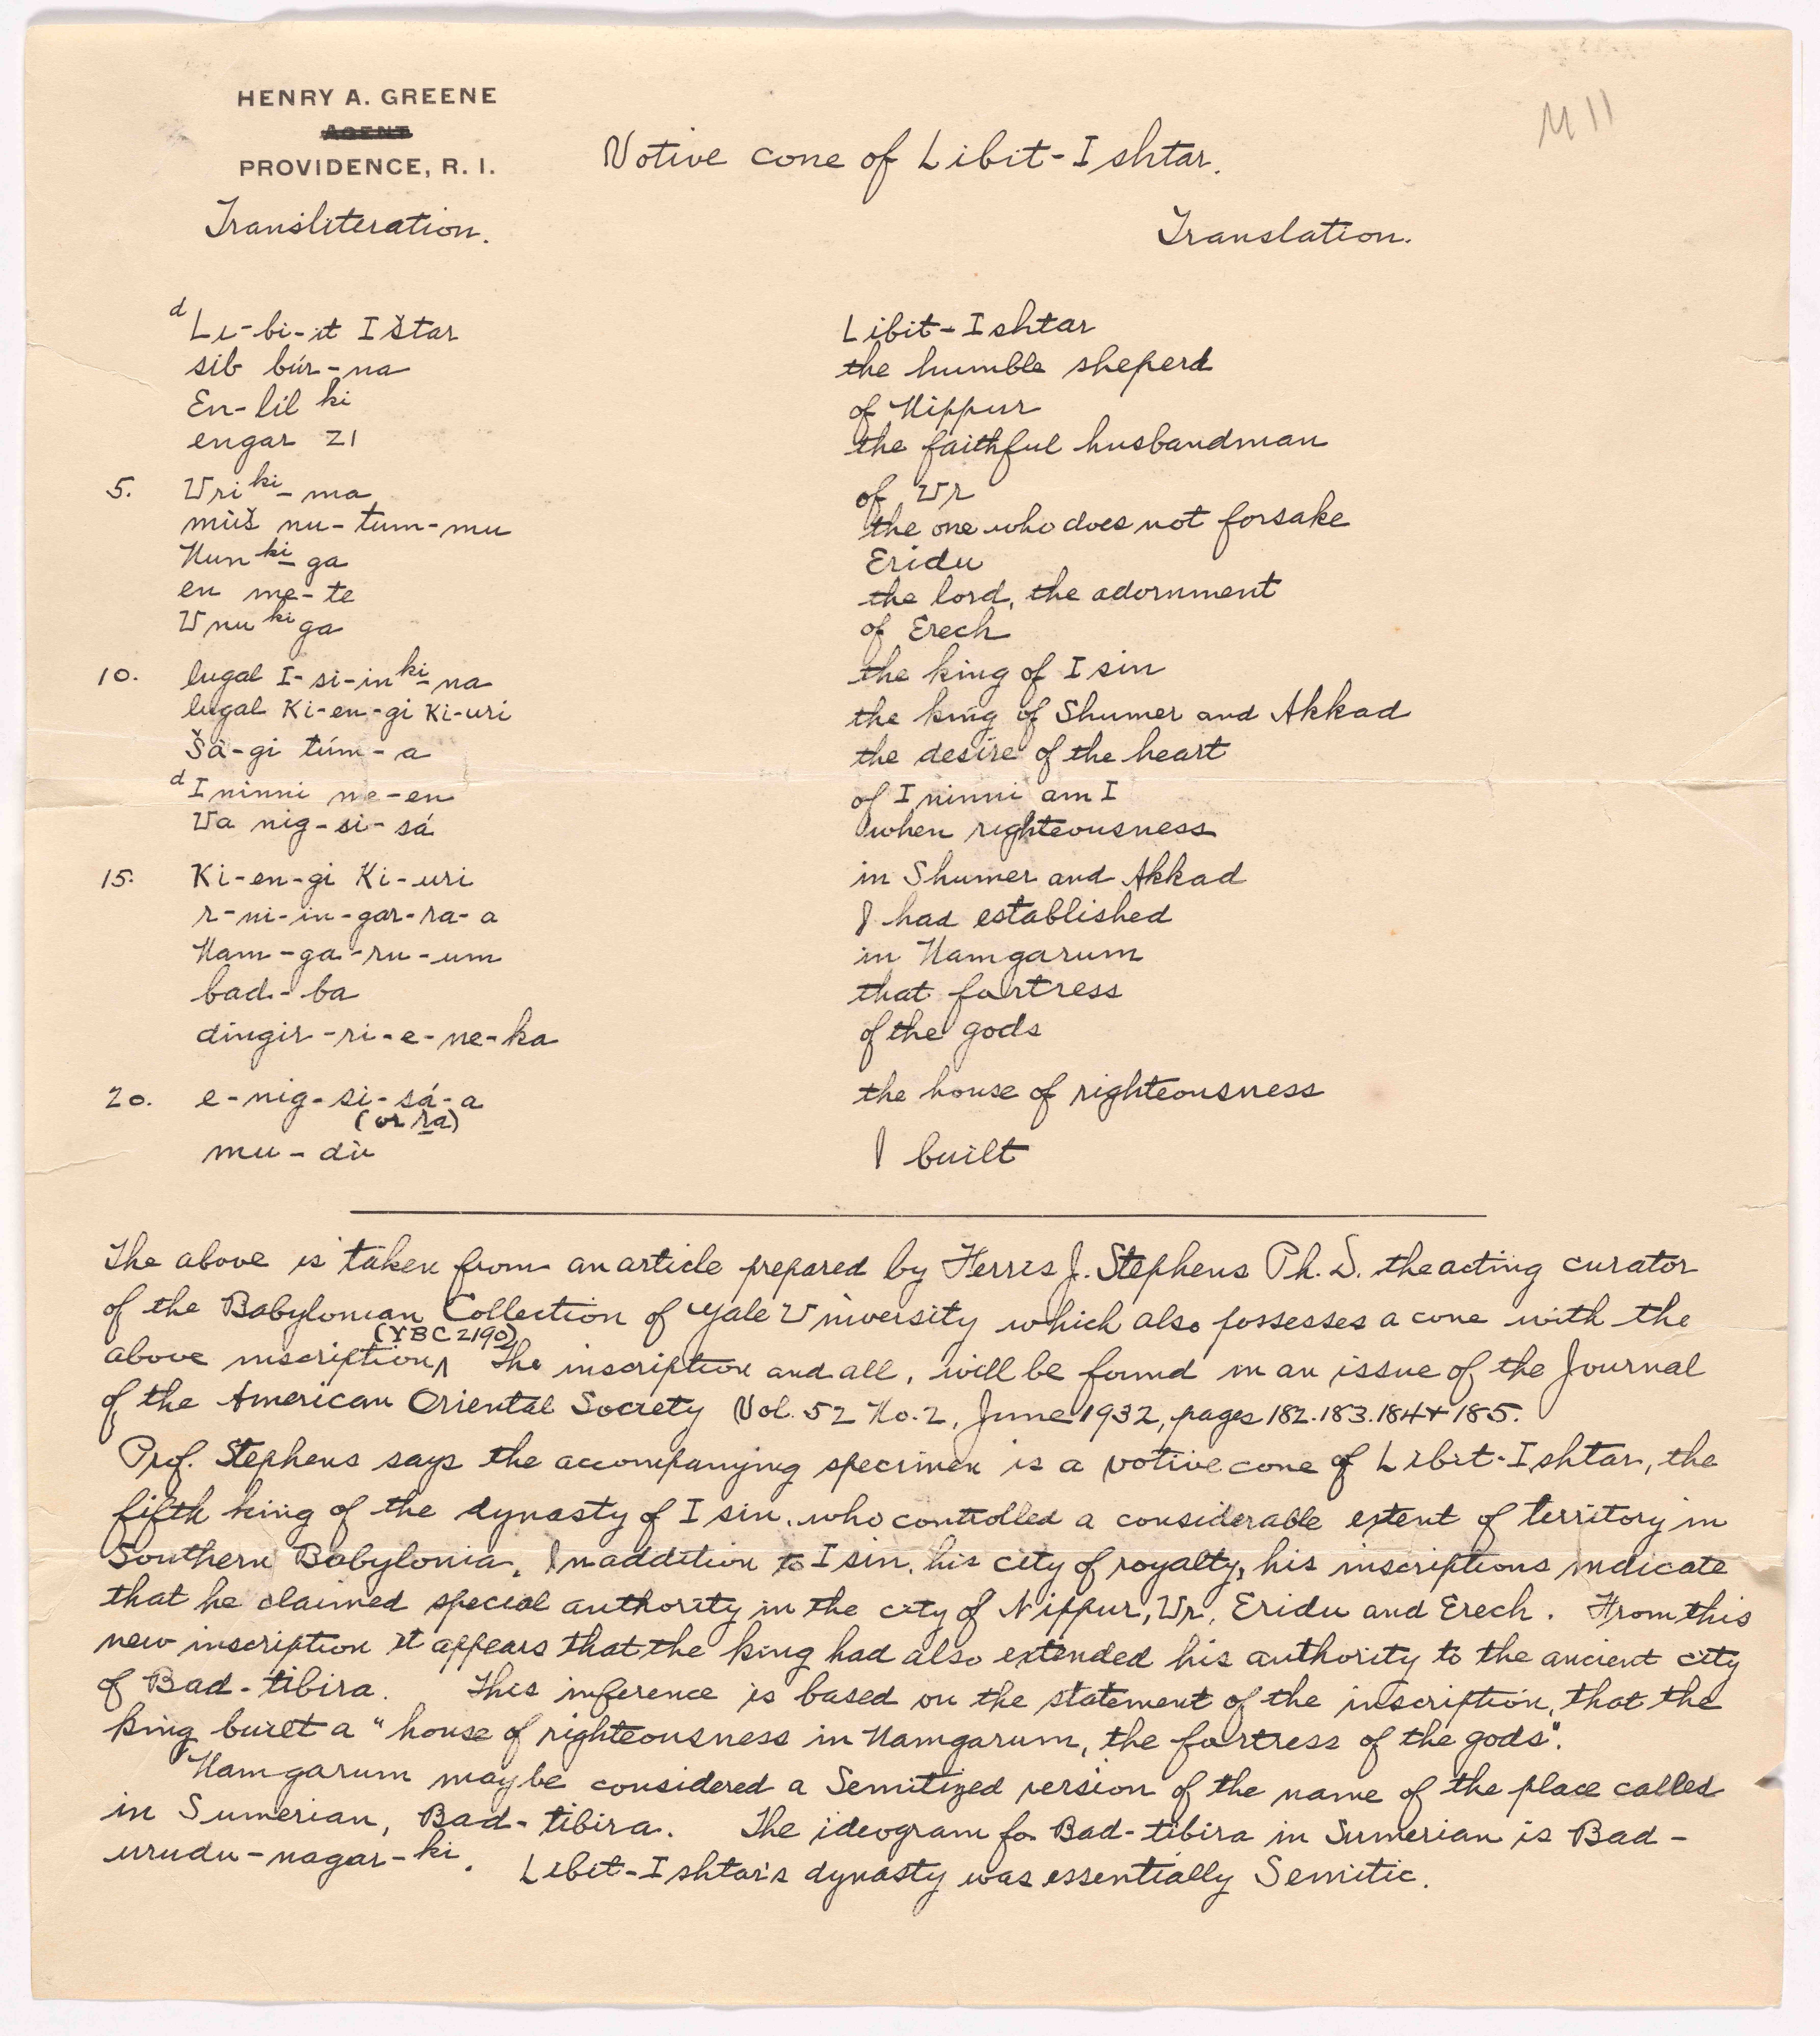 HENRY A. GREENE
AGENT
PROVIDENCE, R. I.
M 11
Votive cone of Libit-Ishtar.
Transliteration.
Translation.
d Li-bi-it Ištar   Libit-Ishtar
sib búr-na   the humble sheperd
En-lil ki   of Nippur
engar zi   the faithful husbandman
5. Uri ki-ma   of Ur
mùš nu-tum-mu   the one who does not forsake
Nun ki-ga   Eridu
en me-te   the lord, the adornment
Unu ki ga   of Erech
10. lugal I-si-in ki-na   the king of Isin
lugal Ki-en-gi Ki-uri   the king of Shumer and Akkad
Šà-gi túm-a   the desire of the heart
d Ininni me-en   of Ininni am I
Ua nig-si-sá   when righteousness
15. Ki-en-gi Ki-uri   in Shumer and Akkad
r-ni-in-gar-ra-a   I had established
Nam-ga-ru-um   in Namgarum
bad-ba   that fortress
dingir-ri-e-ne-ka   of the gods
20. e-nig-si-sá-a   the house of righteousness
(or ra)
mu-dù   I built
The above is taken from an article prepared by Ferris J. Stephens Ph. D. the acting curator
of the Babylonian Collection of Yale University which also possesses a cone with the
(YBC 2190)
above inscription^ The inscription and all, will be found in an issue of the Journal
of the American Oriental Society Vol. 52 No. 2, June 1932, pages 182.183.184 + 185.
Prof. Stephens says the accompanying specimen is a votive cone of Libit-Ishtar, the
fifth king of the dynasty of Isin, who controlled a considerable extent of territory in
Southern Babylonia. In addition to Isin, his city of royalty, his inscriptions indicate
that he claimed special authority in the city of Nippur, Ur, Eridu and Erech. From this
new inscription it appears that the king had also extended his authority to the ancient city
of Bad-tibira. This inference is based on the statement of the inscription, that the
king built a "house of righteousness in Namgarum, the fortress of the gods".
Namgarum may be considered a Semitized version of the name of the place called
in Sumerian, Bad-tibira. The ideogram for Bad-tibira in Sumerian is Bad-
urudu-nagar-ki. Libit-Ishtar's dynasty was essentially Semitic.